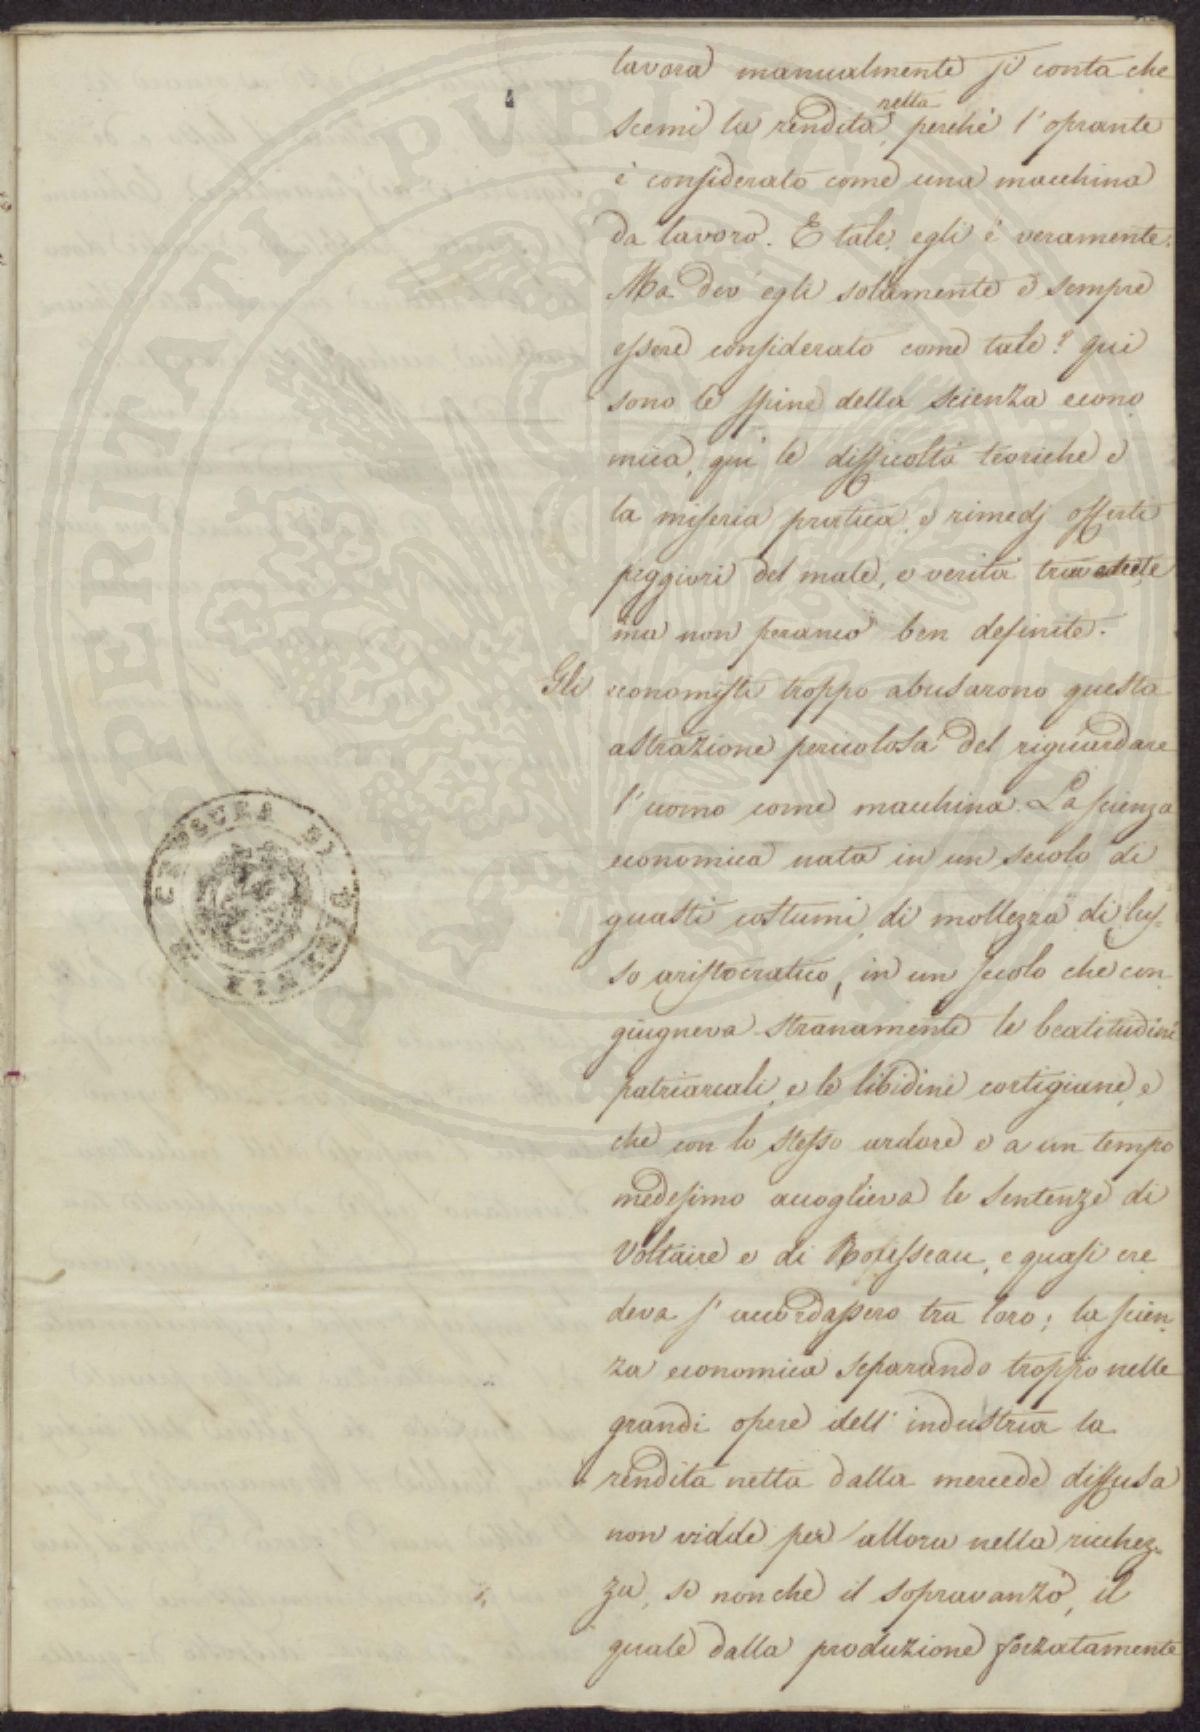 lavora manualmente si conta che
scemi la rendita netta, perchè l'oprante
è considerato come una macchina
da lavoro. E tale egli è veramente.
Ma dev'egli solamente e sempre
essere considerato come tale? qui
sono le spine della scienza econo
mica, qui le difficoltà teoriche e
la miseria pratica, e rimedj offerti
peggiori del male, e verità travedute,
ma non peranco ben definite.
Gli economisti troppo abusarono questa
astrazione pericolosa del riguardare
l'uomo come macchina. La scienza
economica nata in un secolo di
guasti costumi, di mollezza di lus-
so aristocratico, in un secolo che con
giugneva stranamente le beatitudini
patriarcali, e le libidini cortigiane, e
che con lo stesso ardore e a un tempo
medesimo accoglieva le sentenze di
Voltaire e di Rousseau, e quasi cre
deva s'accordassero tra loro; la scien-
za economica separando troppo nelle
grandi opere dell'industria la
rendita netta dalla mercede diffusa
non vidde per allora nella ricchez-
za, se non che il sopravanzo, il
quale dalla produzione forzatamente
CENSURA DI FIRENZE
PERITATI PUBLICAE